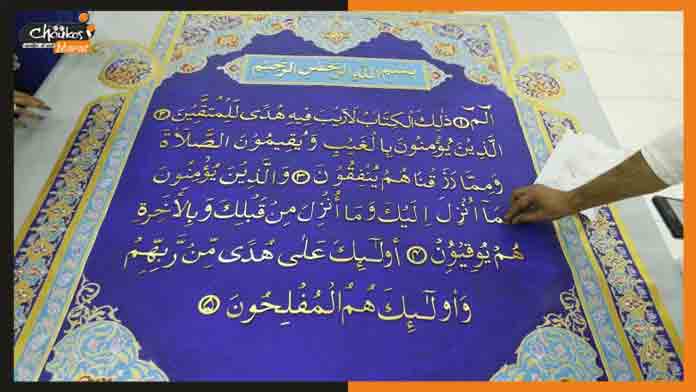 Choukas
Murat
بِسْمِ اللهِ الرَّحْمٰنِ الرَّحِيْمِ
الٓمّٓ ۝۱ ذٰلِكَ الْكِتَابُ لَارَيْبَ فِيْهِ هُدًى لِّلْمُتَّقِيْنَ ۝۲
الَّذِيْنَ يُؤْمِنُوْنَ بِالْغَيْبِ وَيُقِيمُوْنَ الصَّلَاةَ
وَمِمَّا رَزَقْنَاهُمْ يُنْفِقُوْنَ ۝۳ وَالَّذِيْنَ يُؤْمِنُوْنَ
مَآ اُنْزِلَ اِلَيْكَ وَمَا أُنْزِلَ مِنْ قَبْلِكَ وَبِالْاٰخِرَةِ
هُمْ يُوْقِنُوْنَ ۝۴ أُولٰٓئِكَ عَلٰى هُدًى مِّنْ رَّبِّهِمْ
وَأُولٰٓئِكَ هُمُ الْمُفْلِحُوْنَ ۝۵